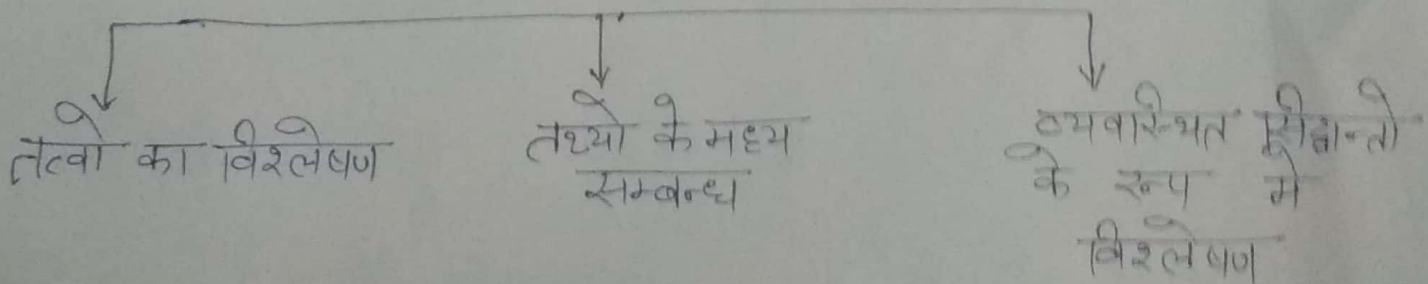 तत्वो का विश्लेषण
तथ्यो के मध्य
सम्बन्ध
व्यवस्थित सिद्धान्तो
के रूप मे
विश्लेषण